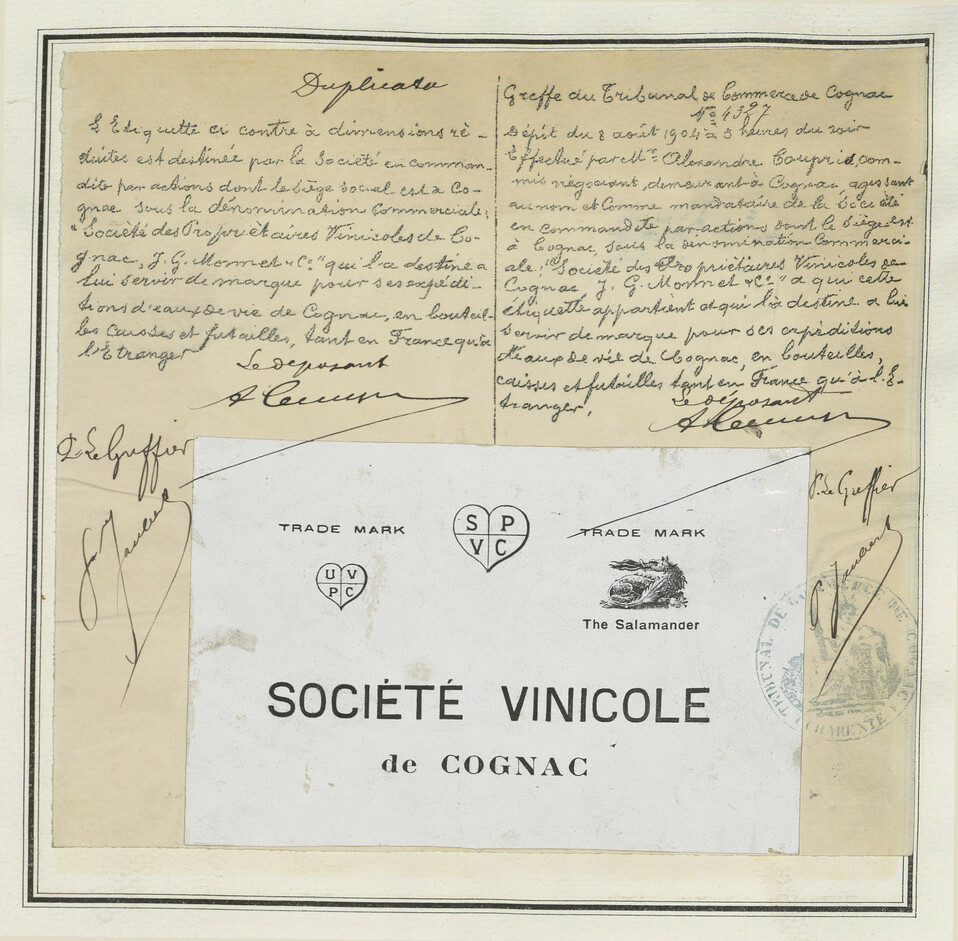 Duplicata
L'Etiquette ci contre à dimensions ré-
duites est destinée par la Société en comman-
dite par actions dont le siège social est à Co-
gnac sous la dénomination commerciale:
"Société des Propriétaires Vinicoles de Co-
gnac, J. G. Monnet & Cº" qui l'a destine a
lui servir de marque pour ses expédi-
tions d'eaux de vie de Cognac, en bouteil-
les caisses et futailles, tant en France qu'à
l'Etranger
Le déposant
P. Le Greffier
Greffe du Tribunal de Commerce de Cognac
Nº 4327
Dépôt du 8 août 1904 à 5 heures du soir
Effectué par Mr Alexandre Couprie, com-
mis négociant, demeurant à Cognac, agissant
au nom et comme mandataire de la Société
en commandite par actions dont le siège est
à Cognac, sous la dénomination commerci-
ale: "Société des Propriétaires Vinicoles de
Cognac J. G. Monnet & Cº" a qui cette
étiquette appartient et qui l'a destine a lui
servir de marque pour ses expéditions
d'eaux de vie de Cognac, en bouteilles,
caisses et futailles tant en France qu'à l'E-
tranger,
Le déposant
P. Le Greffier
TRADE MARK
U V
P C
S P
V C
TRADE MARK
The Salamander
SOCIÉTÉ VINICOLE
de COGNAC
TRIBUNAL DE COMMERCE DE COGNAC
CHARENTE